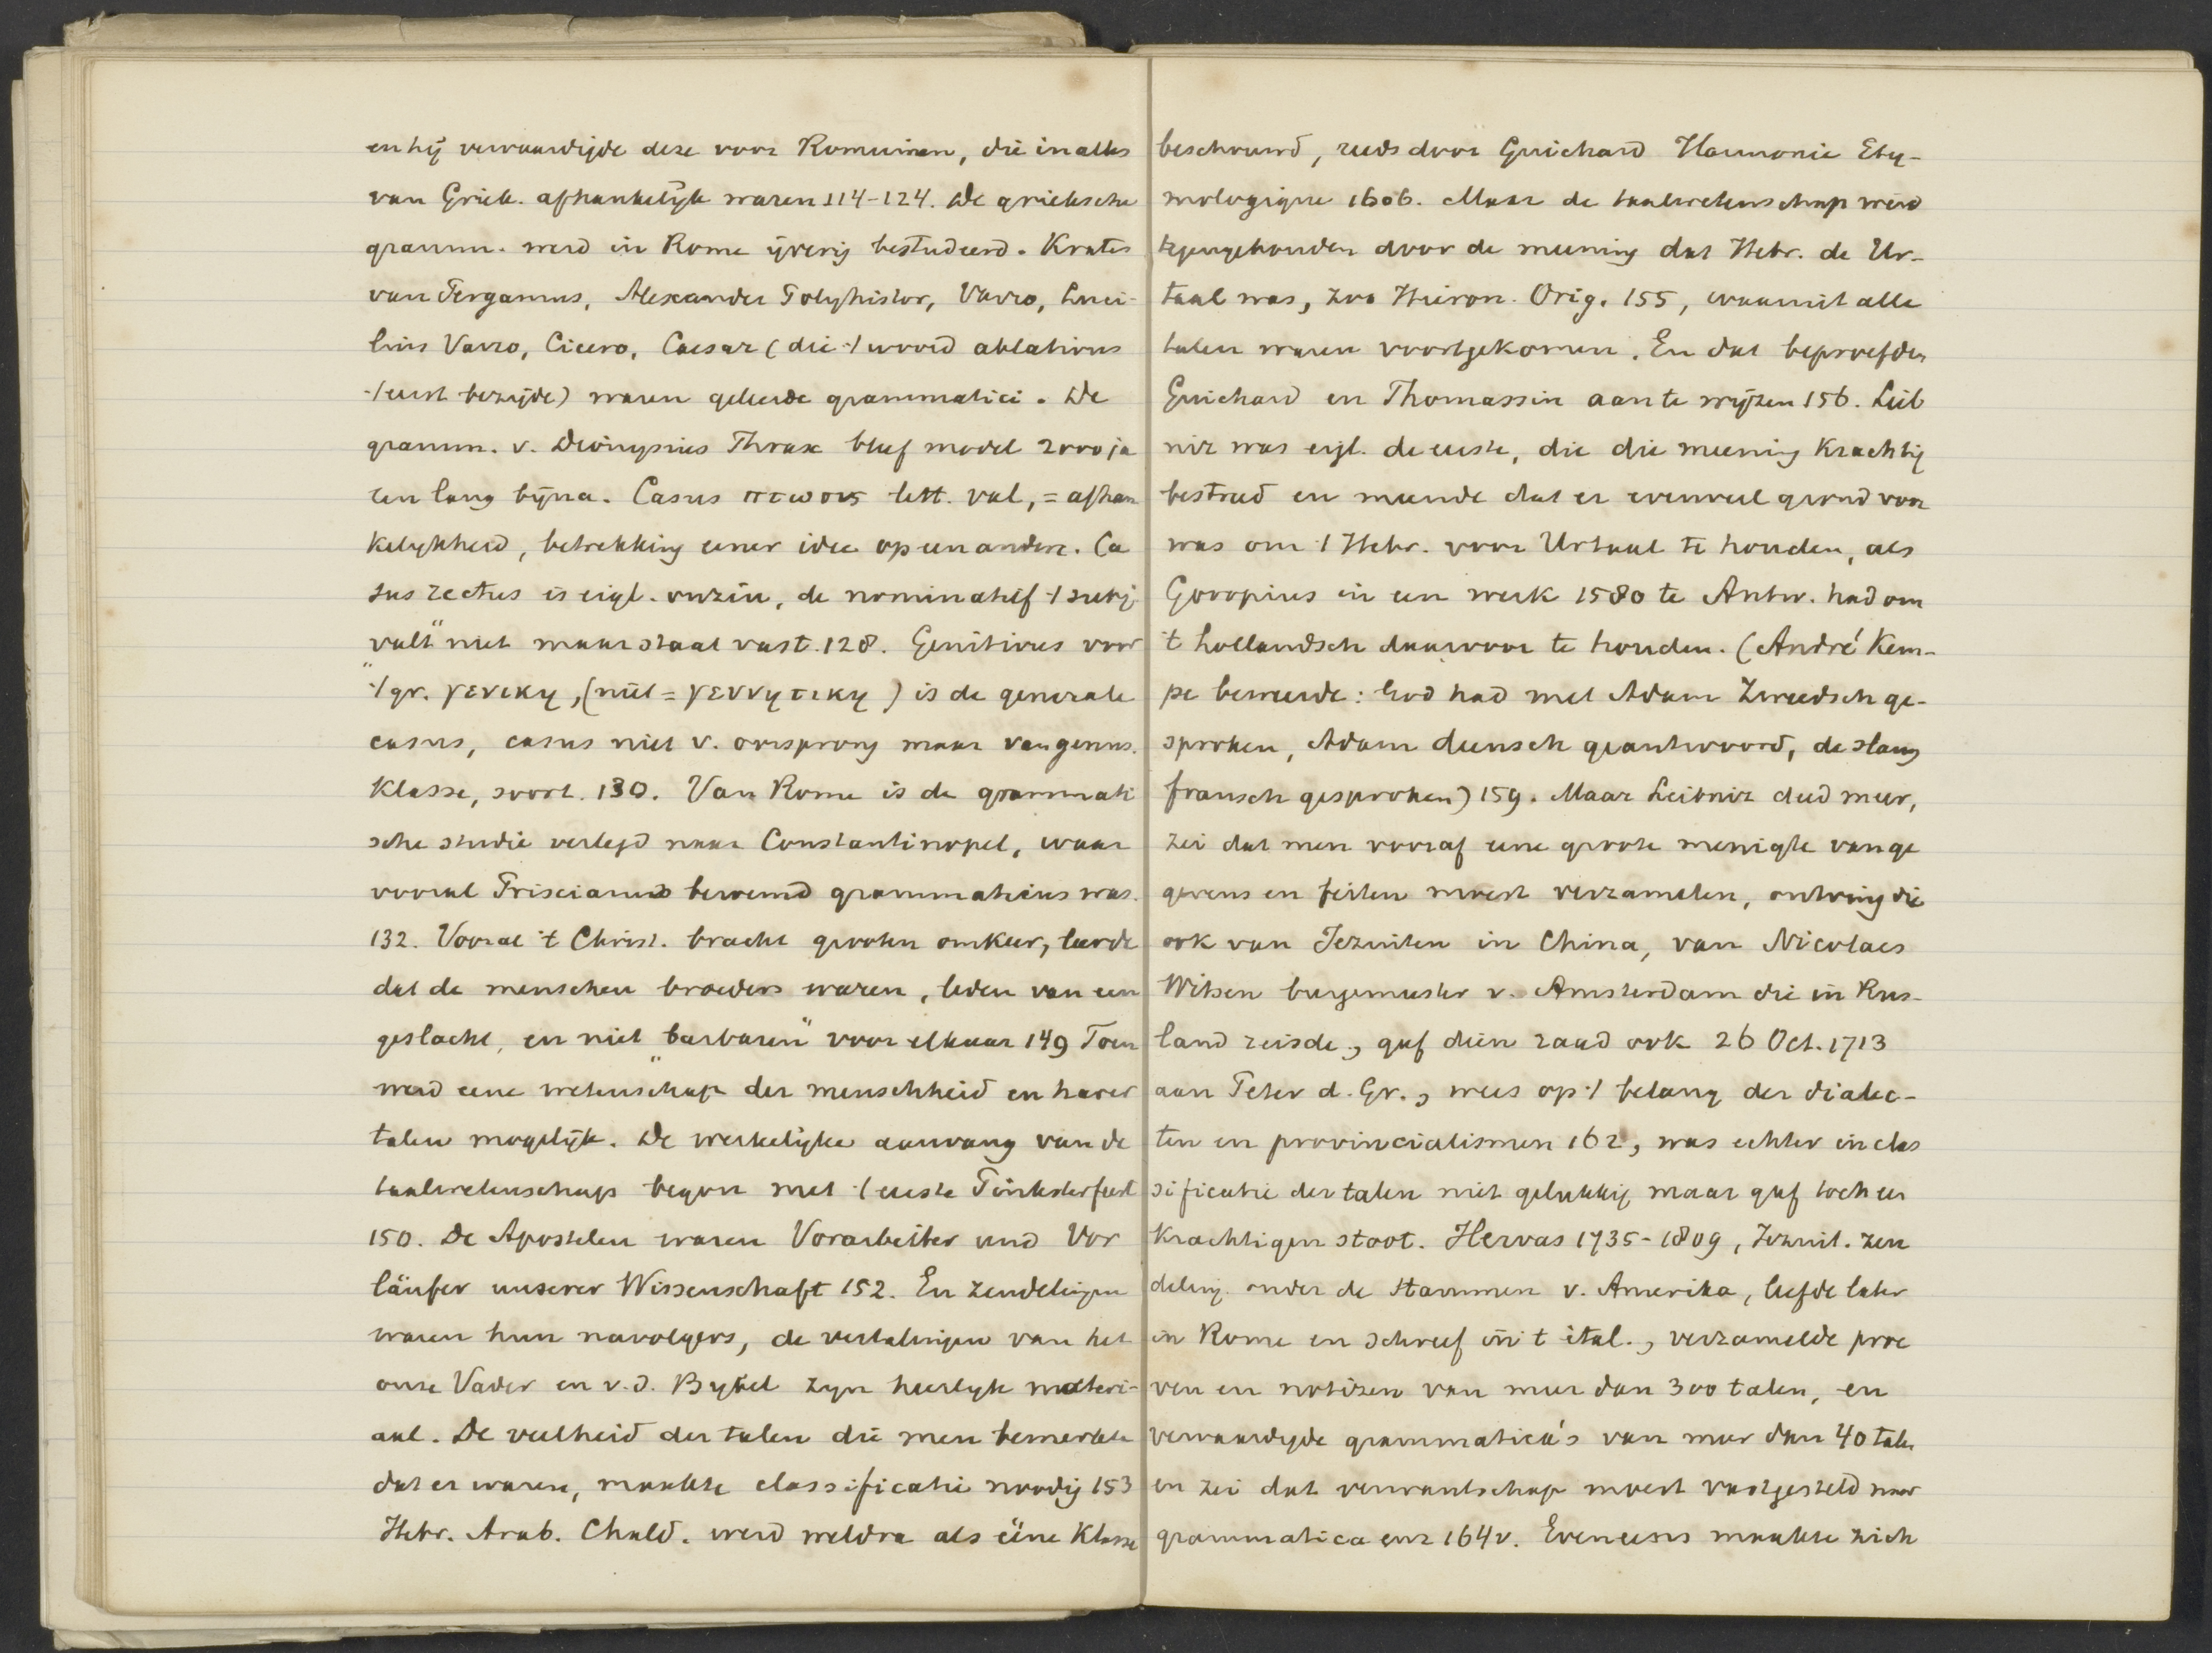 en hij vervaardigde deze voor Romeinen, die in alles
van Griek. afhankelijk waren 114-124. De grieksche
gramm. werd in Rome ijverig bestudeerd. Krates
van Pergamus, Alexander Polyhistor, Varro, Luci-
lius Varro, Cicero, Caesar (die 't woord ablativus
't eerst bezigde) waren geleerde grammatici. De
gramm. v. Dionysius Thrax bleef model 2000 ja
ren lang bijna. Casus πτωσις lett. val, = afhan
kelykheid, betrekking eener idee op een andere. Ca
sus rectus is eigl. onzin, de nominatief 't subj.
"valt" niet maar staat vast. 128. Genitivus voor
't gr. γενικη, (niet = γεννητικη) is de generale
casus, casus niet v. oorsprong maar van genus.
Klasse, soort. 130. Van Rome is de grammati
sche studie verlegd naar Constantinopel, waar
vooral Priscianus beroemd grammaticus was.
132. Vooral 't Christ. bracht grooten omkeer, leerde
dat de menschen broeders waren, leden van een
geslacht, en niet "barbaren" voor elkaar 149 Toen
werd eene wetenschap der menschheid en harer
talen mogelijk. De werkelijke aanvang van de
taalwetenschap begon met 't eerste Pinksterfeest
150. De Apostelen waren Vorarbeiter und Vor
läufer unserer Wissenschaft 152. En zendelingen
waren hun navolgers, de vertalingen van het
onze Vader en v. d. Bybel zyn heerlyk materi-
aal. De veelheid der talen die men bemerkte
dat er waren, maakte classificatie noodig 153
Hebr. Arab. Chald. werd weldra als ééne Klasse
beschouwd, reeds door Guichard Harmonie Ety-
mologique 1606. Maar de taalwetenschap werd
tegengehouden door de meening dat Hebr. de Ur-
taal was, zoo Hieron. Orig. 155, waaruit alle
talen waren voortgekomen. En dat beproefden
Guichard en Thomassin aan te wijzen 156. Leib
niz was eigl. de eerste, die die meening Krachtig
bestreed en meende dat er evenveel grond voor
was om 't Hebr. voor Urtaal te houden, als
Goropius in een werk 1580 te Antw. had om
't hollandsch daarvoor te houden. (André Kem-
pe beweerde: God had met Adam Zweedsch ge-
sproken, Adam deensch geantwoord, de slang
fransch gesproken) 159. Maar Leibniz deed meer,
zei dat men vooraf eene groote menigte van ge
gevens en feiten moest verzamelen, ontving die
ook van Jezuiten in China, van Nicolaes
Witsen burgemeester v. Amsterdam die in Rus-
land reisde, gaf dien raad ook 26 Oct. 1713
aan Peter d. Gr., wees op 't belang der dialec-
ten en provincialismen 162, was echter in clas
sificatie der talen niet gelukkig maar gaf toch een
Krachtigen stoot. Hervas 1735-1809, Jezuit. zen
deling onder de stammen v. Amerika, leefde later
in Rome en schreef in 't ital., verzamelde proe
ven en notizen van meer dan 300 talen, en
vervaardigde grammatica's van meer dan 40 talen
en zei dat verwantschap moest vastgesteld naar
grammatica enz 164v. Eveneens maakte zich